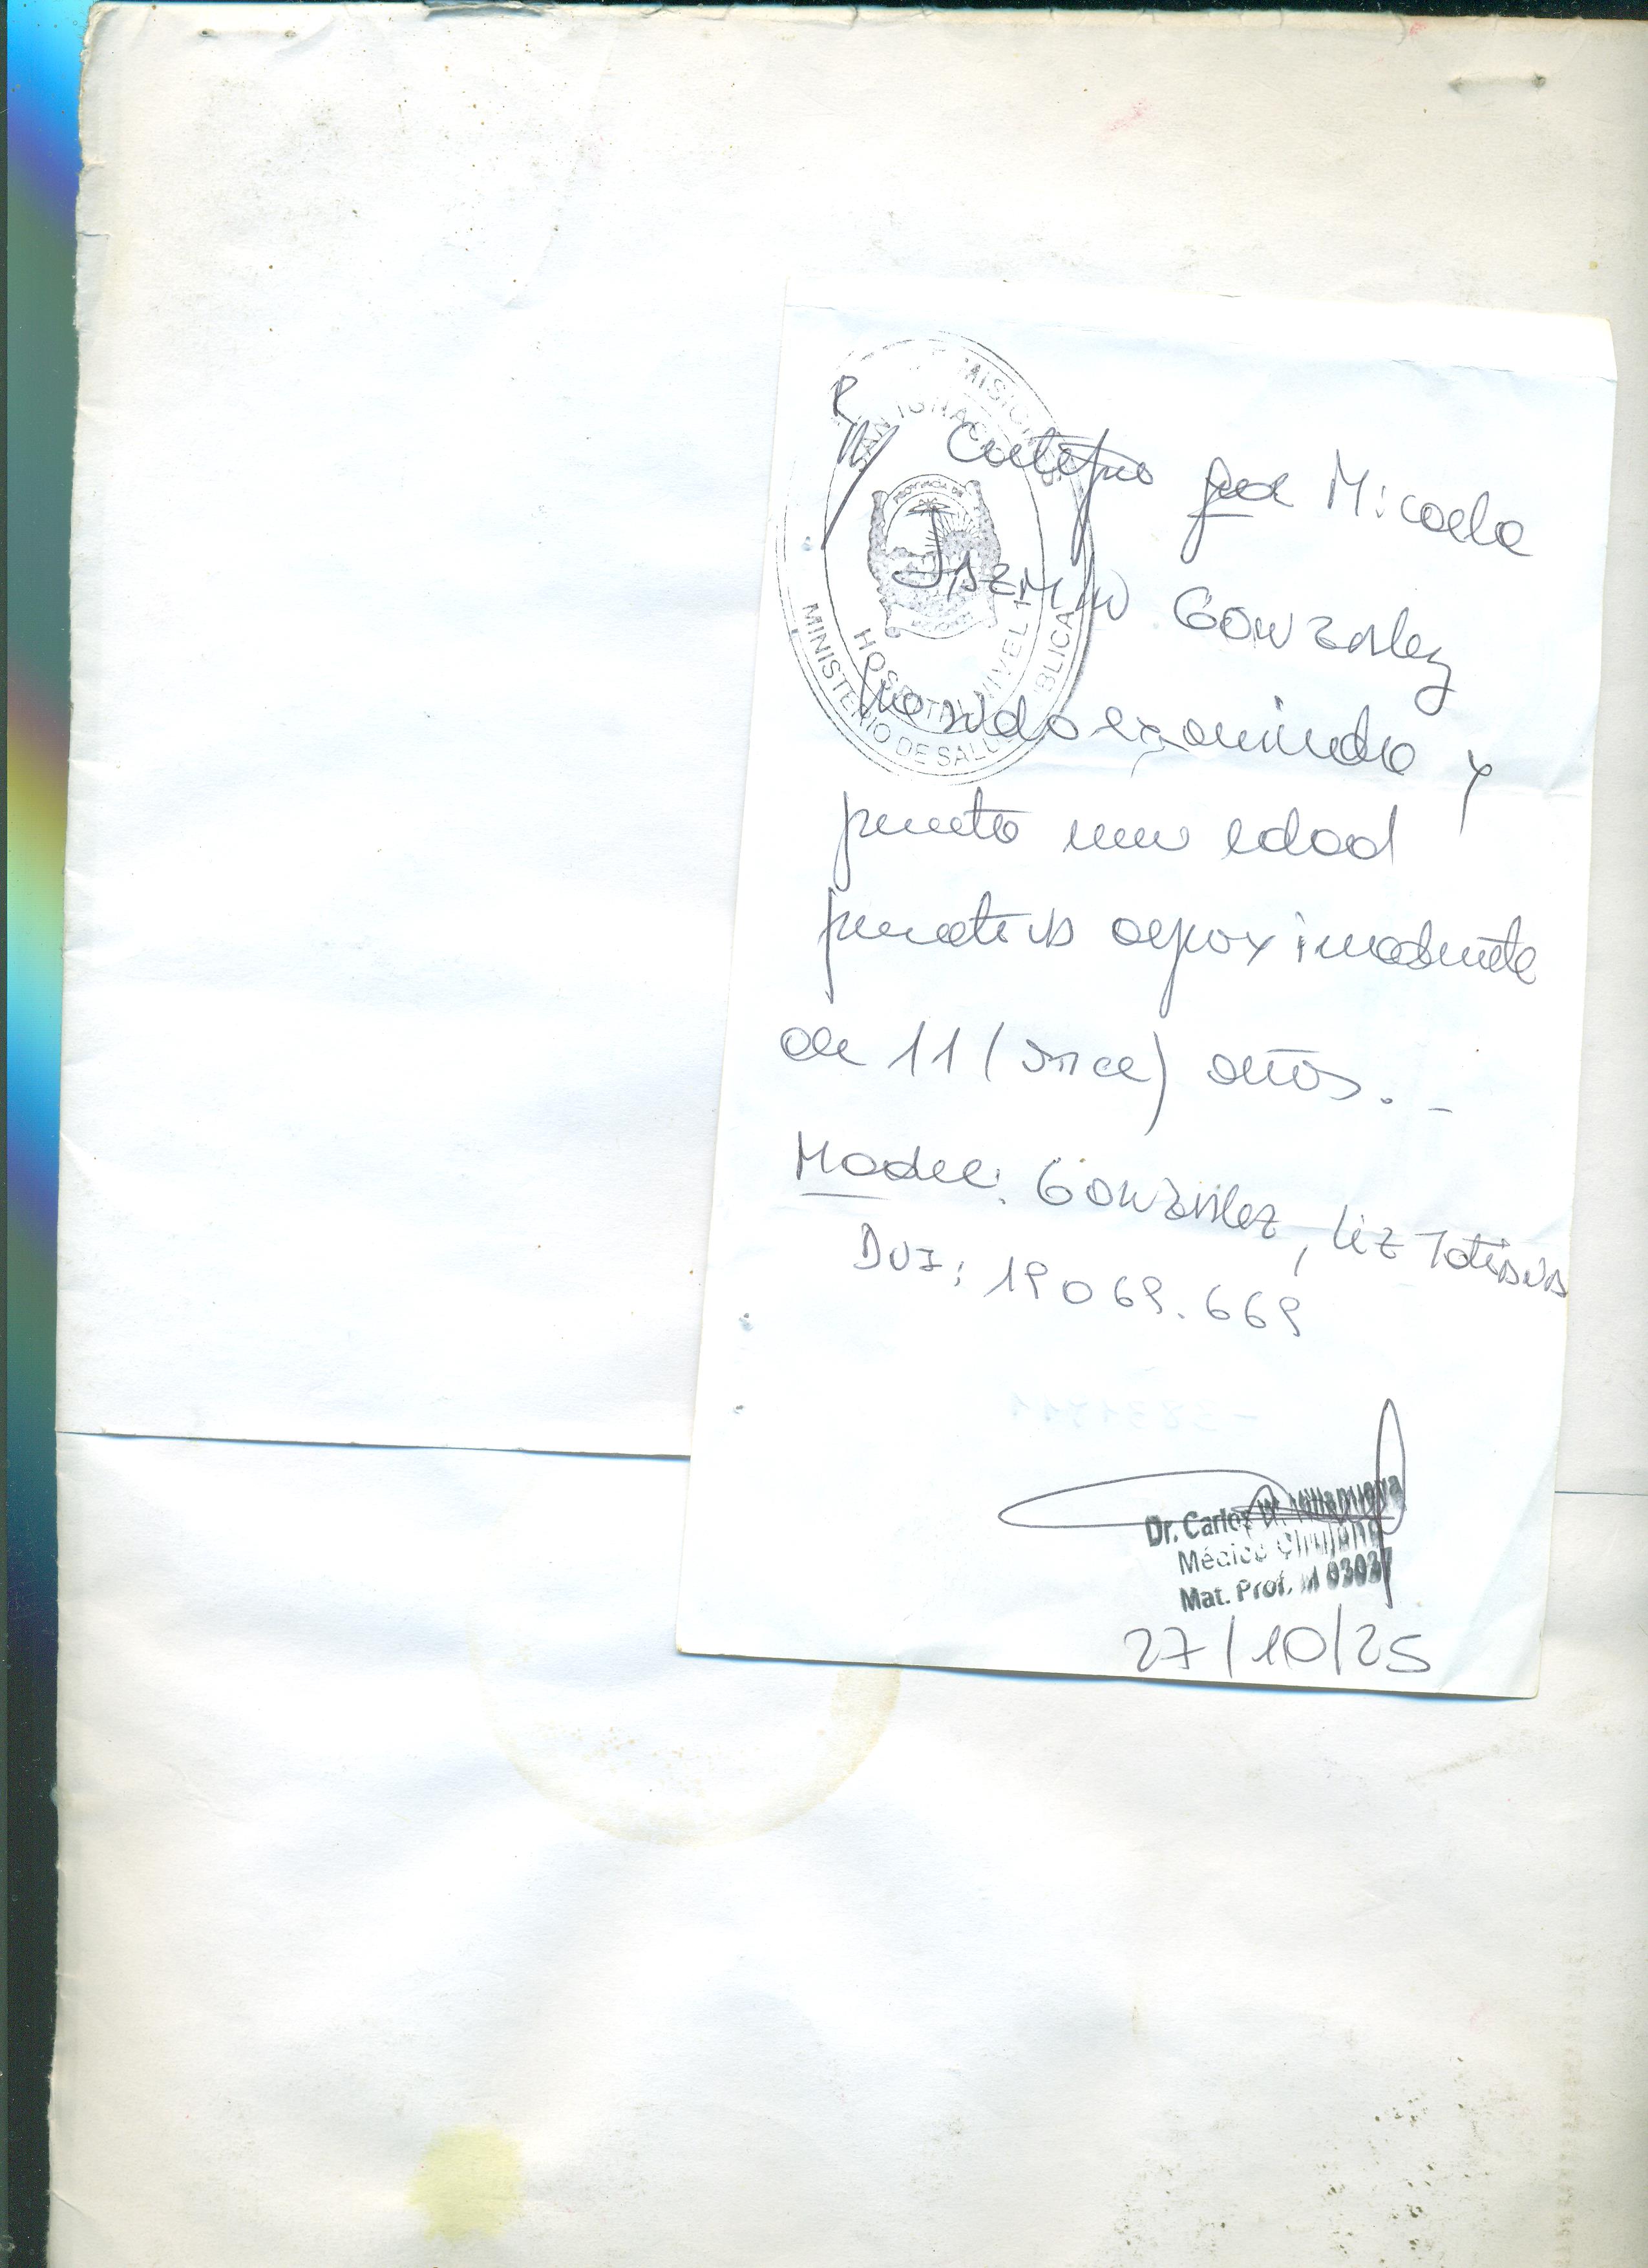 MISIONES
SAN IGNACIO
PROVINCIA DE
HOSPITAL NIVEL 1
MINISTERIO DE SALUD PÚBLICA
R
Certifico que Micaela
Jazmin Gonzalez
ha sido examinada y
presenta una edad
putativa aproximadamente
de 11 (once) años. -
Madre: Gonzalez, Liz Tatiana
DNI: 19069.669
Dr. Carlos W. Villanueva
Médico Cirujano
Mat. Prof. M
27/10/25